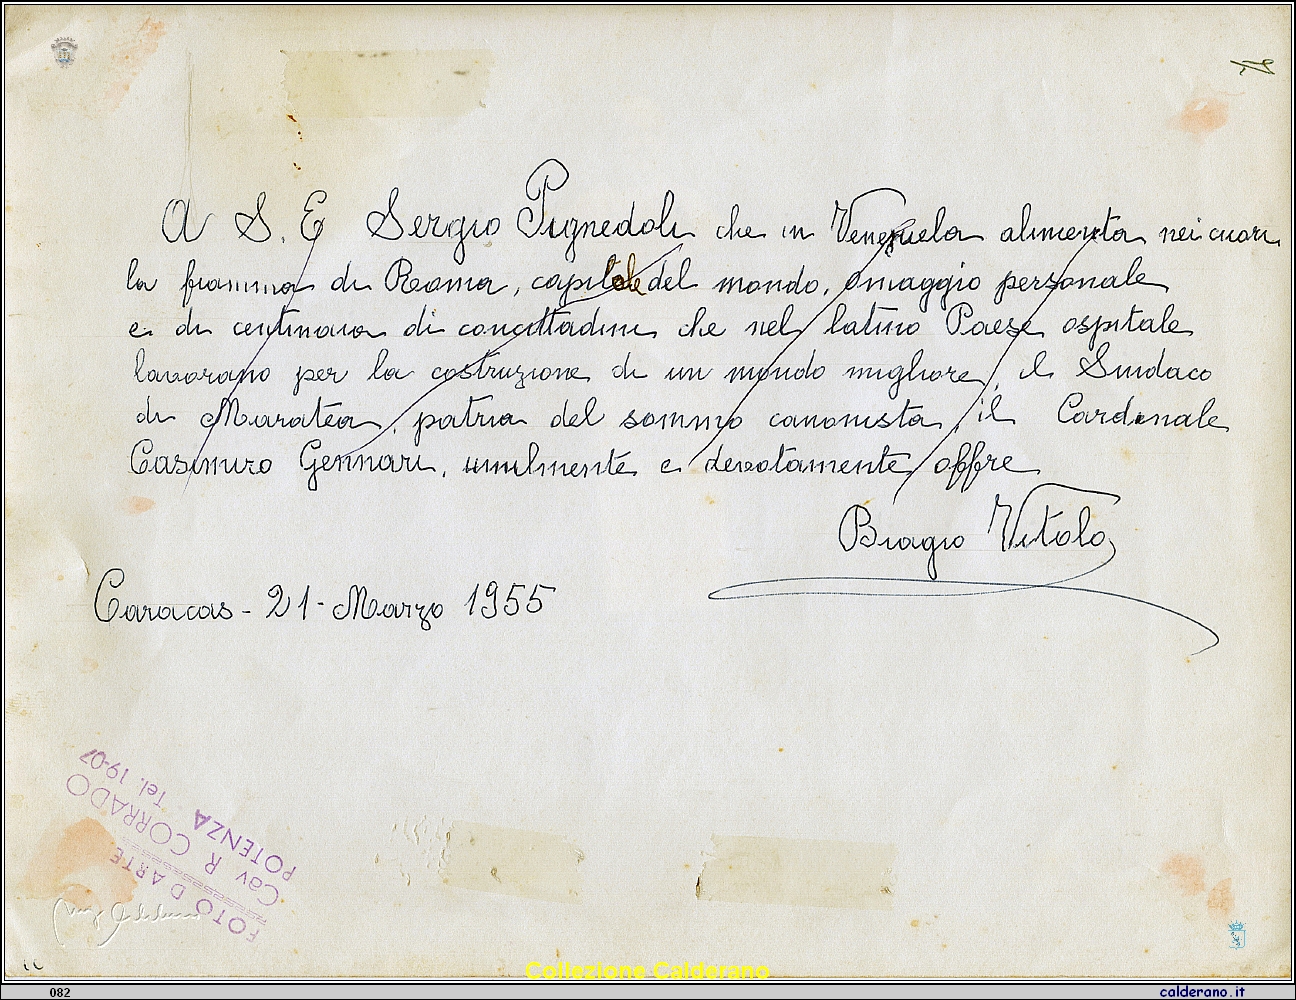 A S. E Sergio Pignedoli che in Venezuela alimenta nei cuori
la fiamma di Roma, capitale del mondo, omaggio personale
e di centinaia di concittadini che nel latino Paese ospitale
lavorano per la costruzione di un mondo migliore, il Sindaco
di Maratea, patria del sommo canonista, il Cardinale
Casimiro Gennari, umilmente e devotamente offre
Biagio Vitolo
Caracas - 21 - Marzo 1955
FOTO D'ARTE
Cav R CORRADO
POTENZA
Tel. 19-07
Collezione Calderano
082
calderano.it